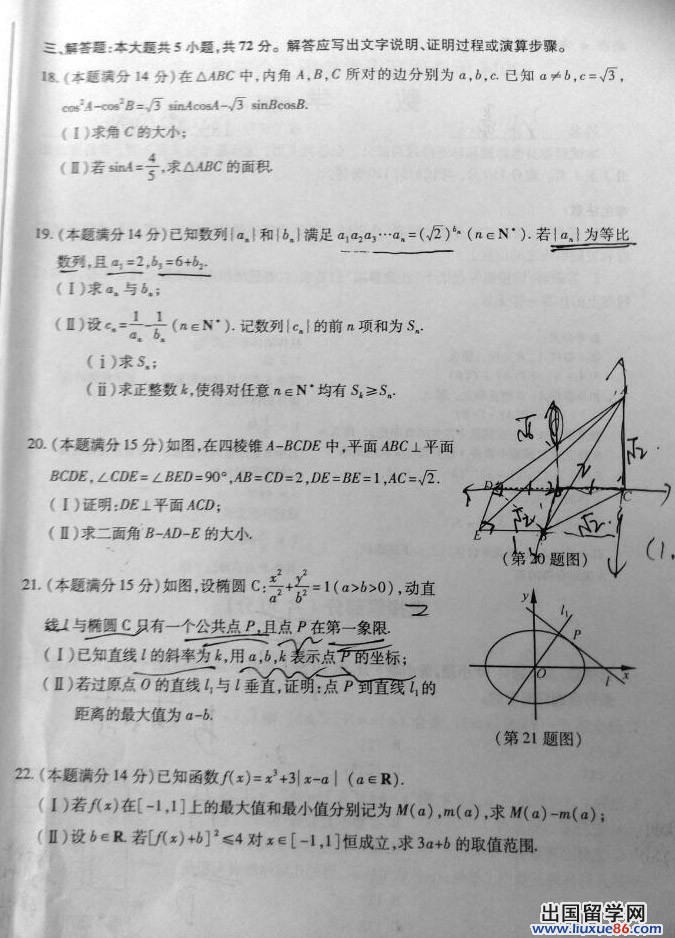 三、解答题:本大题共5小题,共72分。解答应写出文字说明、证明过程或演算步骤。
18.(本题满分14分)在△ABC中,内角A,B,C所对的边分别为a,b,c.已知a≠b,c=√3,
cos²A-cos²B=√3 sinAcosA-√3 sinBcosB.
(Ⅰ)求角C的大小;
(Ⅱ)若sinA=4/5,求△ABC的面积.
19.(本题满分14分)已知数列{aₙ}和{bₙ}满足a₁a₂a₃⋯aₙ=(√2)^bₙ(n∈N*).若{aₙ}为等比
数列,且a₁=2,b₃=6+b₂.
(Ⅰ)求aₙ与bₙ;
(Ⅱ)设cₙ=1/aₙ-1/bₙ(n∈N*).记数列{cₙ}的前n项和为Sₙ.
(ⅰ)求Sₙ;
(ⅱ)求正整数k,使得对任意n∈N*均有Sₖ≥Sₙ.
20.(本题满分15分)如图,在四棱锥A-BCDE中,平面ABC⊥平面
BCDE,∠CDE=∠BED=90°,AB=CD=2,DE=BE=1,AC=√2.
(Ⅰ)证明:DE⊥平面ACD;
(Ⅱ)求二面角B-AD-E的大小.
√6
2
√2
D
C
√2
√2
E
B
(1,
(第20题图)
21.(本题满分15分)如图,设椭圆C:x²/a²+y²/b²=1(a>b>0),动直
线l与椭圆C只有一个公共点P,且点P在第一象限.
(Ⅰ)已知直线l的斜率为k,用a,b,k表示点P的坐标;
(Ⅱ)若过原点O的直线l₁与l垂直,证明:点P到直线l₁的
距离的最大值为a-b.
y
l₁
P
O
l
x
(第21题图)
22.(本题满分14分)已知函数f(x)=x³+3|x-a|(a∈R).
(Ⅰ)若f(x)在[-1,1]上的最大值和最小值分别记为M(a),m(a),求M(a)-m(a);
(Ⅱ)设b∈R.若[f(x)+b]²≤4对x∈[-1,1]恒成立,求3a+b的取值范围.
出国留学网
www.liuxue86.com